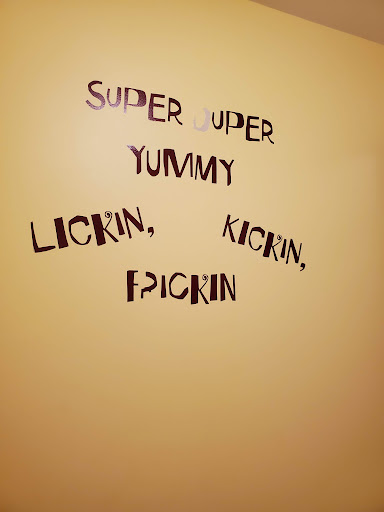 SUPER DUPER
YUMMY
LICKIN, KICKIN,
FRICKIN